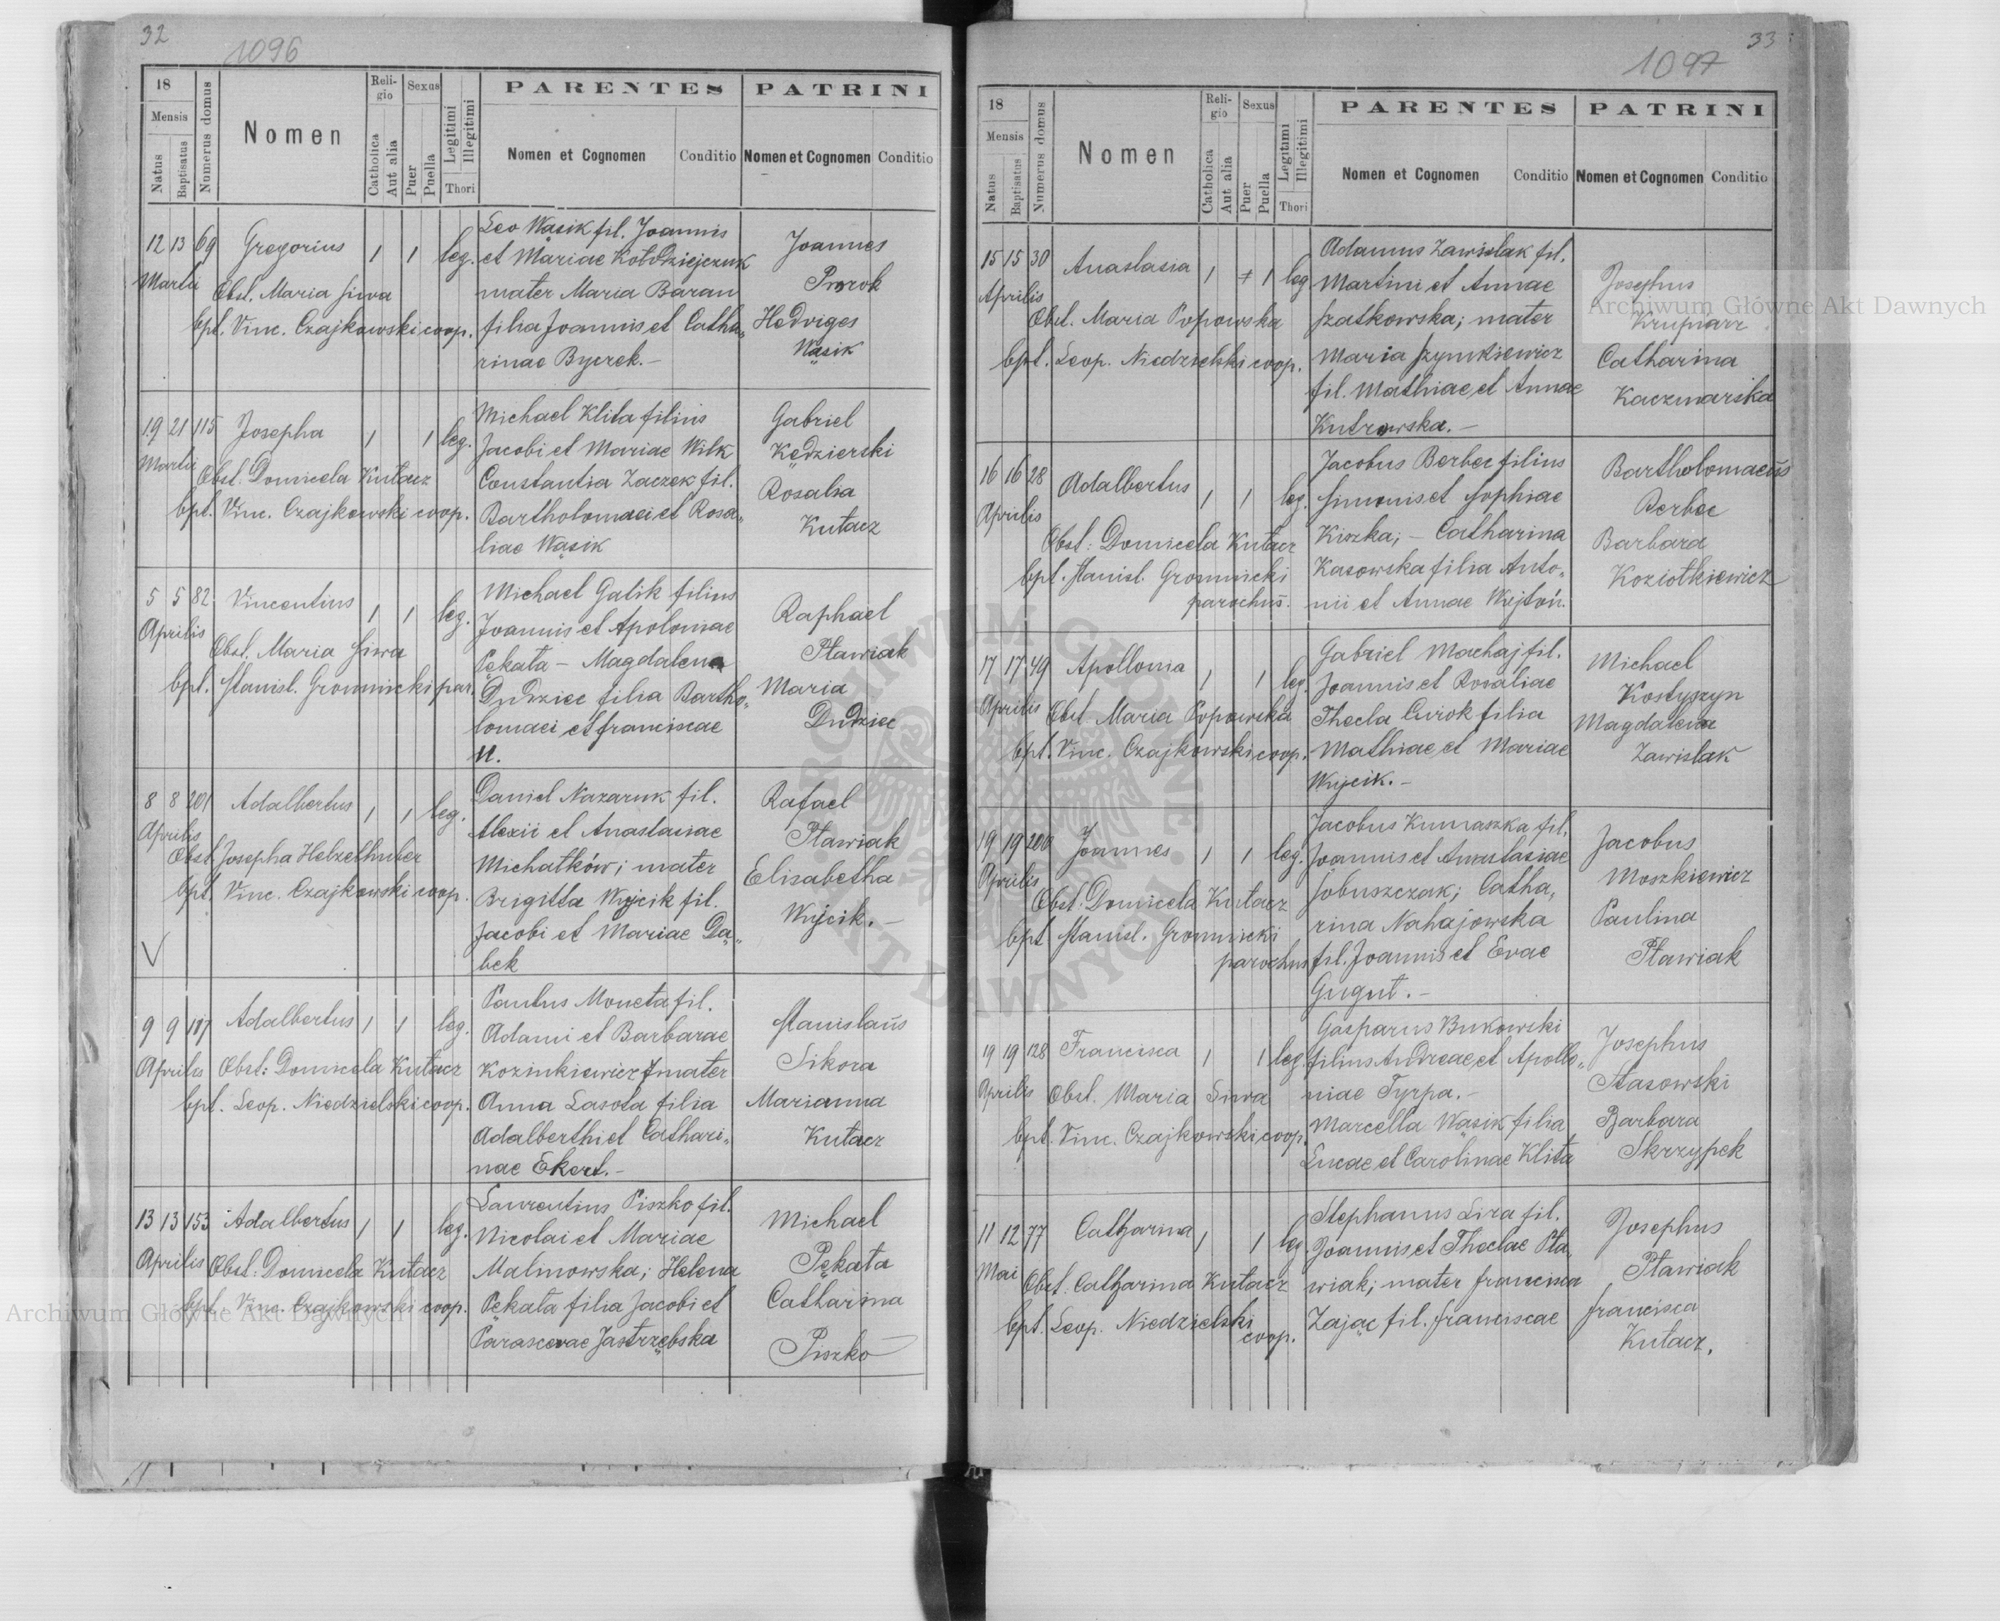 32
1096
18
Mensis
Natus
Baptisatus
Numerus domus
Nomen
Religio
Catholica
Aut alia
Sexus
Puer
Puella
Legitimi
Illegitimi
Thori
PARENTES
Nomen et Cognomen
Conditio
PATRINI
Nomen et Cognomen
Conditio
12 13 69 Gregorius 1 1 leg.
Martii
Obst. Maria Siwa
bpt. Vinc. Czajkowski coop.
Leo Wąsik fil. Joannis
et Mariae Kołodziejczuk
mater Maria Baran
filia Joannis et Catha-
rinae Byczek.-
Joannes
Prorok
Hedviges
Wąsik
19 21 115 Josepha 1 1 leg.
Martii
Obst. Domicela Kułacz
bpt. Vinc. Czajkowski coop.
Michael Klita filius
Jacobi et Mariae Wilk
Constantia Zaczek fil.
Bartholomaei et Rosa-
liae Wąsik
Gabriel
Kędzierski
Rosalia
Kułacz
5 5 82 Vincentius 1 1 leg.
Aprilis
Obst. Maria Siwa
bpt. Stanisl. Gromnicki par.
Michael Galik filius
Joannis et Apoloniae
Pękata - Magdalena
Dudziec filia Bartho-
lomaei et Franciscae
N.
Raphael
Pławiak
Maria
Dudziec
8 8 201 Adalbertus 1 1 leg.
Aprilis
Obst. Josepha Helzelhuber
bpt. Vinc. Czajkowski coop.
Daniel Nazaruk fil.
Alexii et Anastasiae
Michałków; mater
Brigitta Wójcik fil.
Jacobi et Mariae Dą-
bek
Rafael
Pławiak
Elisabetha
Wójcik.-
9 9 187 Adalbertus 1 1 leg.
Aprilis
Obst: Domicela Kułacz
bpt. Leop. Niedzielski coop.
Paulus Moneta fil.
Adami et Barbarae
Kozinkiewicz; mater
Anna Lasota filia
Adalberthi et Cathari-
nae Ekert.-
Stanislaus
Sikora
Marianna
Kułacz
13 13 153 Adalbertus 1 1 leg.
Aprilis
Obst: Domicela Kułacz
bpt. Vinc. Czajkowski coop.
Laurentius Piszko fil.
Nicolai et Mariae
Malinowska; Helena
Pękata filia Jacobi et
Parascevae Jastrzębska
Michael
Pękata
Catharina
Piszko
33
1097
18
Mensis
Natus
Baptisatus
Numerus domus
Nomen
Religio
Catholica
Aut alia
Sexus
Puer
Puella
Legitimi
Illegitimi
Thori
PARENTES
Nomen et Cognomen
Conditio
PATRINI
Nomen et Cognomen
Conditio
15 15 30 Anastasia 1 1 leg
Aprilis
Obst. Maria Popowska
bpt. Leop. Niedzielski coop.
Adamus Zawiślak fil.
Martini et Annae
Szatkowska; mater
Maria Szymkiewicz
fil. Mathiae et Annae
Kutrowska.-
Josephus
Krupiarz
Catharina
Kaczmarska
16 16 28 Adalbertus 1 1 leg.
Aprilis
Obst: Domicela Kułacz
bpt. Stanisl. Gromnicki
parochus.
Jacobus Berbec filius
Simonis et Sophiae
Kiszka; - Catharina
Kasowska filia Anto-
nii et Annae Wójtoń.
Bartholomaeus
Berbec
Barbara
Koziołkiewicz
17 17 49 Apollonia 1 1 leg.
Aprilis
Obst Maria Popowska
bpt. Vinc. Czajkowski coop.
Gabriel Machaj fil.
Joannis et Rosaliae
Thecla Ćwiok filia
Mathiae et Mariae
Wójcik.-
Michael
Kostyszyn
Magdalena
Zawiślak
19 19 200 Joannes 1 1 leg.
Aprilis
Obst: Domicela Kułacz
bpt Stanisl. Gromnicki
parochus
Jacobus Kumaszka fil.
Joannis et Anastasiae
Sobuszczak; Catha-
rina Nahajowska
fil. Joannis et Evae
Gugut.-
Jacobus
Moszkiewicz
Paulina
Pławiak
19 19 128 Francisca 1 1 leg.
Aprilis
Obst. Maria Siwa
bpt. Vinc. Czajkowski coop.
Gasparus Bukowski
filius Andreae et Apollo-
niae Tyrpa.-
Marcella Wąsik filia
Lucae et Carolinae Klita
Josephus
Stasowski
Barbara
Skrzypek
11 12 77 Catharina 1 1 leg.
Mai
Obst. Catharina Kułacz
bpt. Leop. Niedzielski
coop.
Stephanus Lira fil.
Joannis et Theclae Pła-
wiak; mater Francisca
Zając fil. Franciscae
Josephus
Pławiak
Francisca
Kułacz.
Archiwum Główne Akt Dawnych
Archiwum Główne Akt Dawnych
ARCHIWUM GŁÓWNE AKT DAWNYCH